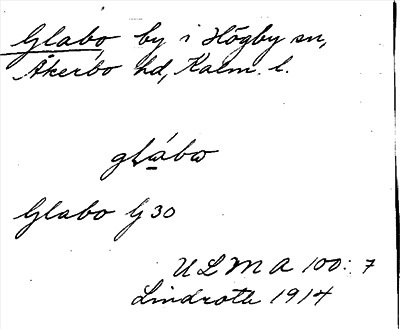 Glabo by i Högby sn,
Åkerbo hd, Kalm. l.
glábω
Glabo G 30
ULMA 100:7
Lindroth 1914